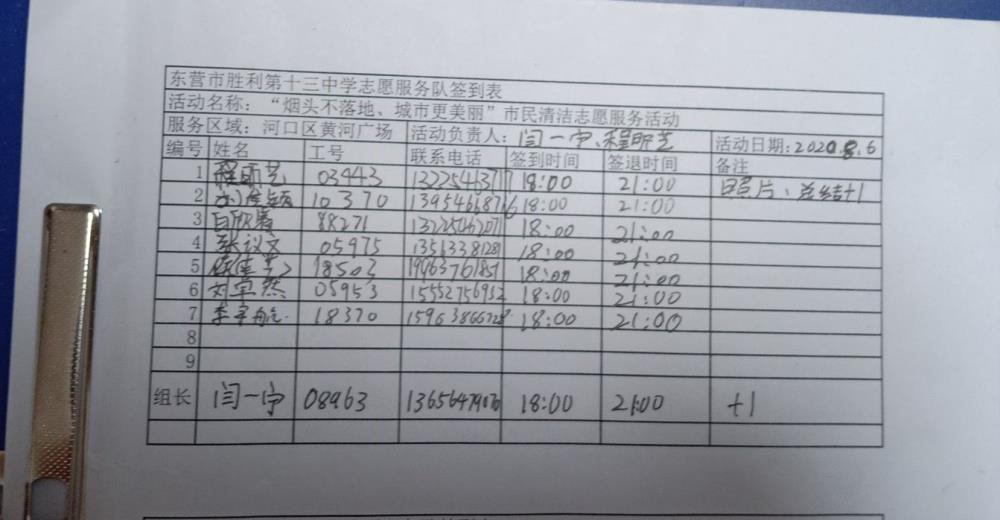 东营市胜利第十三中学志愿服务队签到表
活动名称：“烟头不落地、城市更美丽”市民清洁志愿服务活动
服务区域：河口区黄河广场 活动负责人：闫一宁、程昕艺 活动日期：2020.8.6
编号 姓名 工号 联系电话 签到时间 签退时间 备注
1 程昕艺 03443 18:00 21:00 照片、总结+1
2 10370 18:00 21:00
3 88271 18:00 21:00
4 张议文 05975 13563381281 18:00 21:00
5 18503 18:00 21:00
6 刘卓然 05953 15552756932 18:00 21:00
7 李宇航 18370 18:00 21:00
8
9
组长 闫一宁 08963 13656479070 18:00 21:00 +1